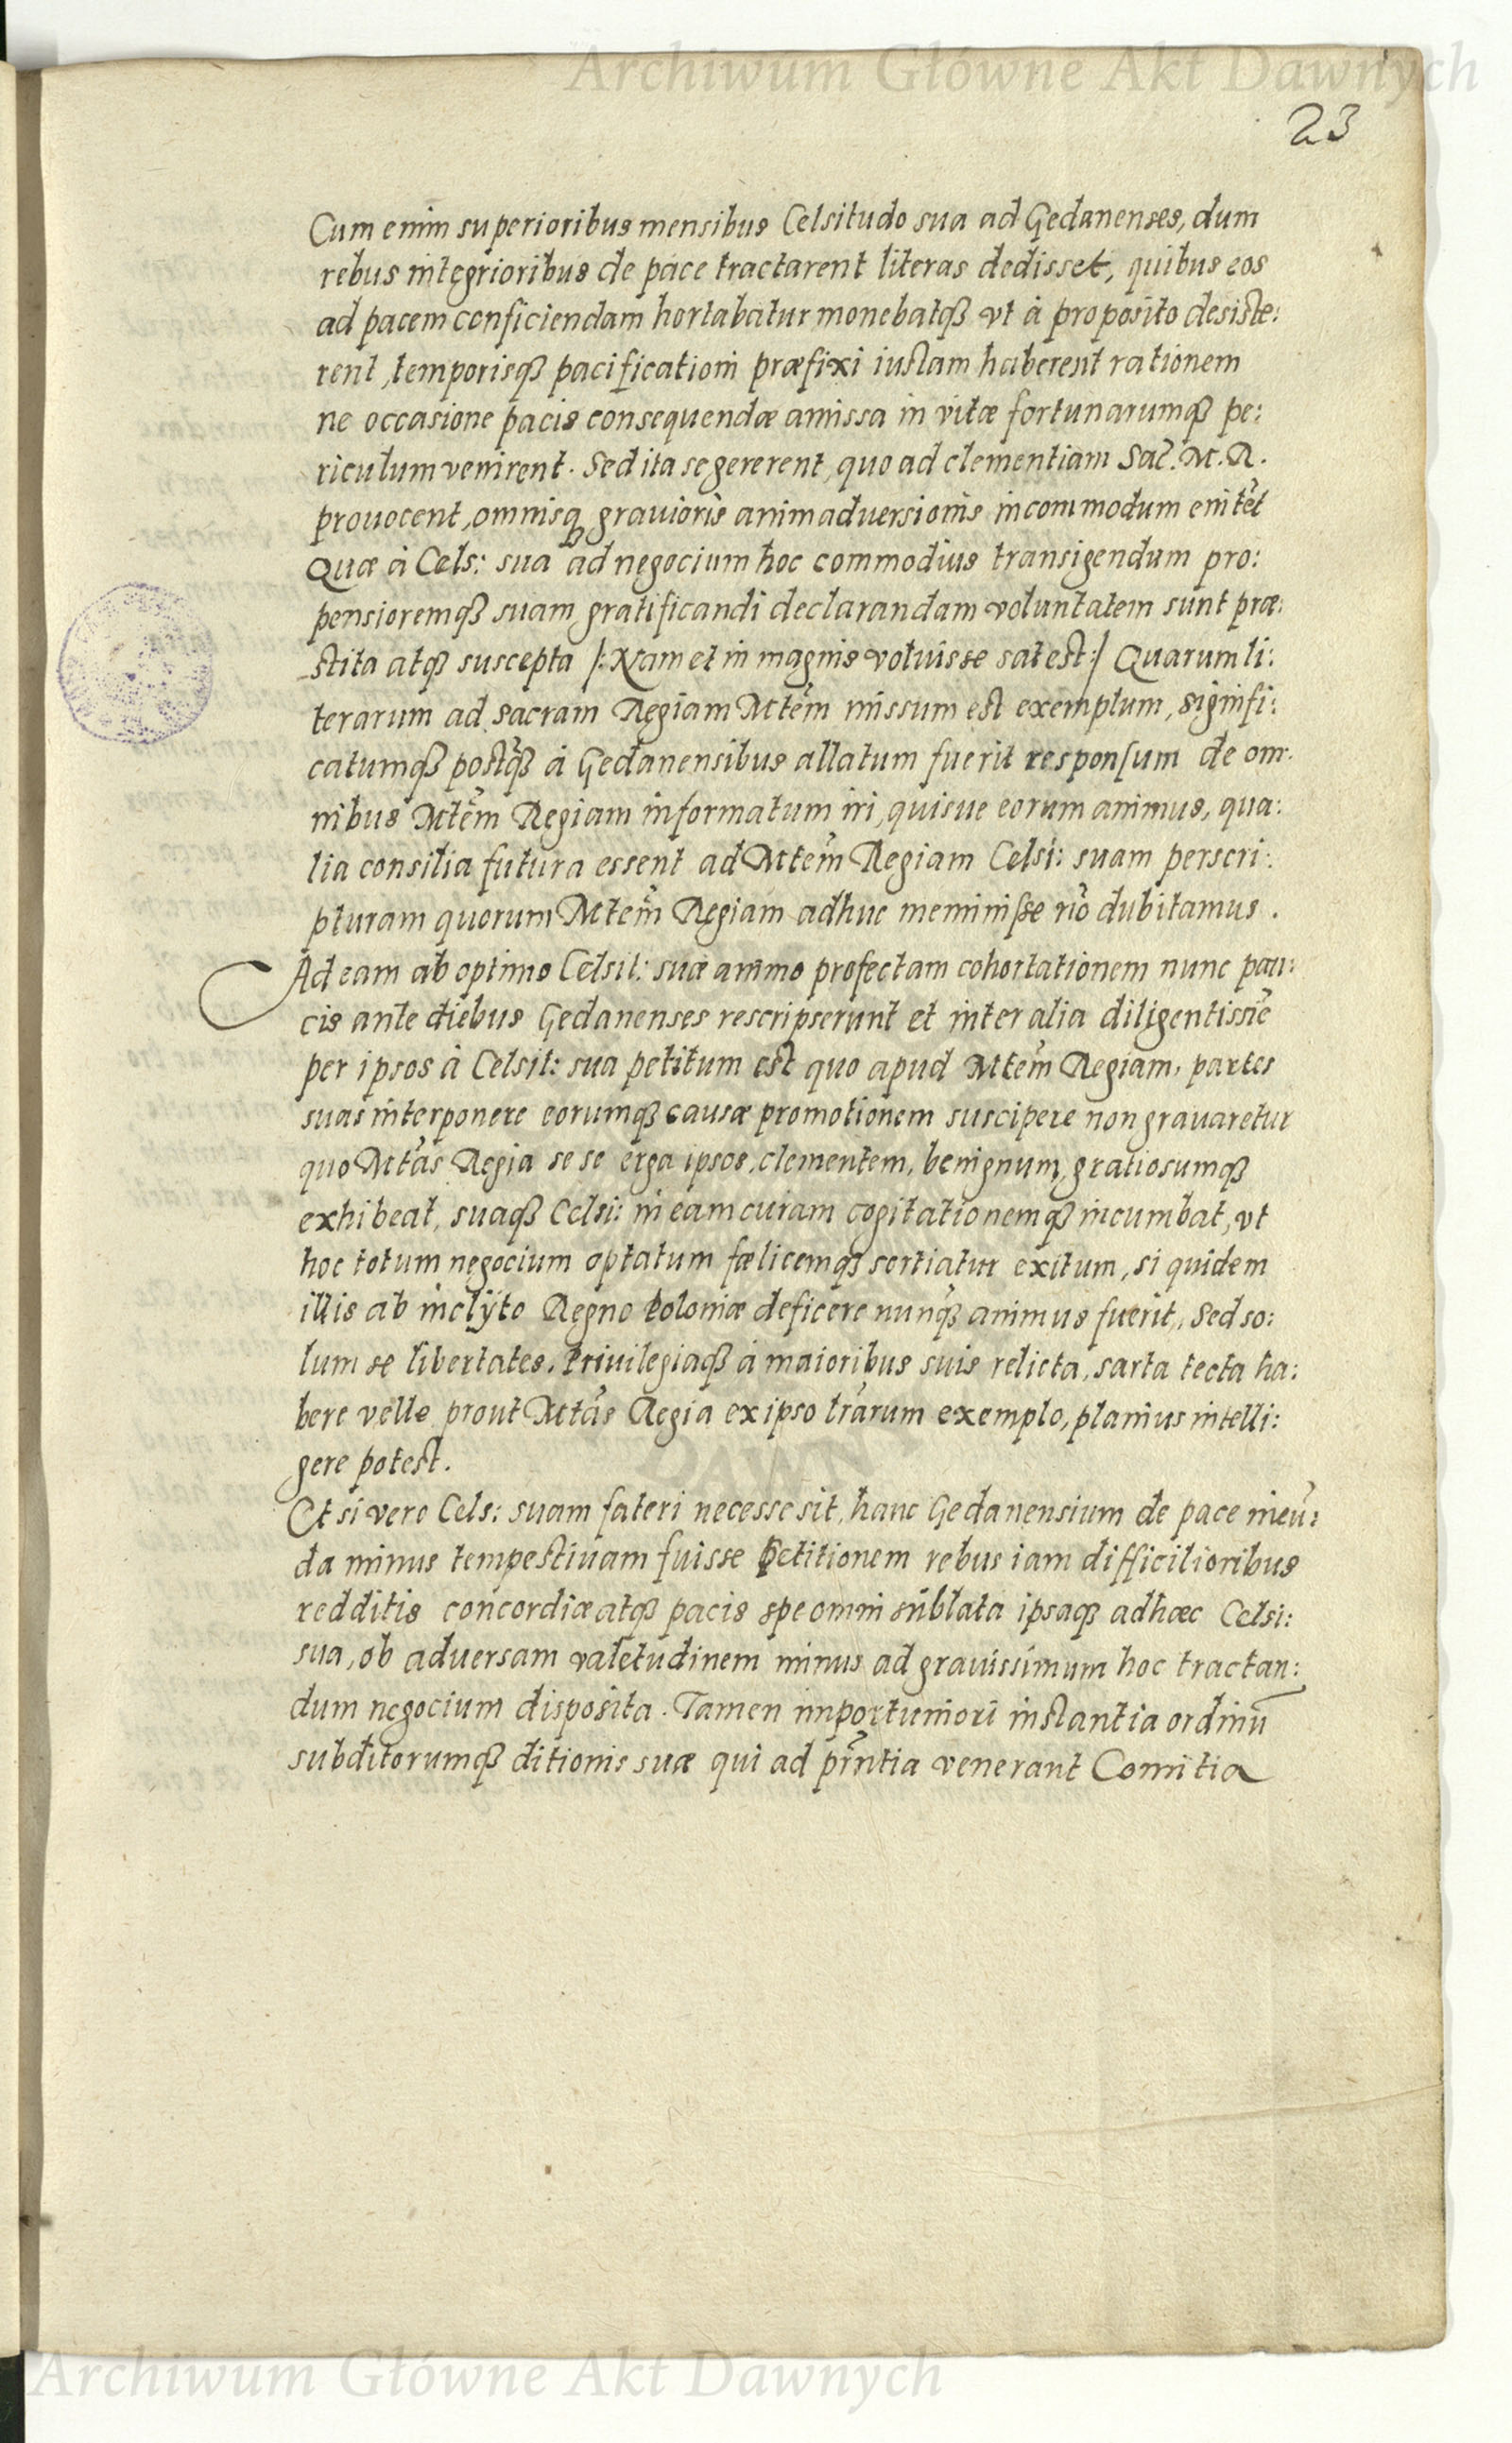 Archiwum Główne Akt Dawnych
23
Cum enim superioribus mensibus Celsitudo sua ad Gedanenses, dum
rebus integrioribus de pace tractarent literas dedisset, quibus eos
ad pacem conficiendam hortabatur monebatq₃ vt à proposito desiste:
rent, temporisq₃ pacificationi præfixi iustam haberent rationem
ne occasione pacis consequendæ amissa in vitæ fortunarumq₃ pe:
riculum venirent. Sed ita se gererent, quo ad clementiam Sac̃. M. R.
prouocent, omnisq₃ grauioris animaduersionis incommodum enitẽt
Quæ à Cels: sua ad negocium hoc commodius transigendum pro:
pensioremq₃ suam gratificandi declarandam voluntatem sunt præ:
stita atq₃ suscepta /: Nam et in magnis voluisse sat est :/ Quarum li:
terarum ad sacram Regiam Mtẽm missum est exemplum, signifi:
catumq₃ postq̃₃ à Gedanensibus allatum fuerit responsum de om:
nibus Mtẽm Regiam informatum iri, quisue eorum animus, qua:
lia consilia futura essent ad Mtẽm Regiam Celsi: suam perscri:
pturam quorum Mtẽm Regiam adhuc meminisse nõ dubitamus.
Ad eam ab optimo Celsit: suæ animo profectam cohortationem nunc pau:
cis ante diebus Gedanenses rescripserunt et inter alia diligentissiẽ
per ipsos à Celsit: sua petitum est quo apud Mtẽm Regiam, partes
suas interponere eorumq₃ causæ promotionem suscipere non grauaretur
quo Mtãs Regia se se erga ipsos, clementem, benignum, gratiosumq₃
exhibeat, suaq₃ Celsi: in eam curam cogitationemq₃ incumbat, vt
hoc totum negocium optatum fœlicemq₃ sortiatur exitum, si quidem
illis ab inclÿto Regno Poloniæ deficere nunq̃₃ animus fuerit, Sed so:
lum se libertates, Priuilegiaq₃ à maioribus suis relicta, sarta tecta ha:
bere velle prout Mtãs Regia ex ipso lr̃arum exemplo, planius intelli:
gere potest.
Et si vero Cels: suam fateri necesse sit, hanc Gedanensium de pace ineũ:
da minus tempestiuam fuisse Petitionem rebus iam difficilioribus
redditis concordiæ atq₃ pacis spe omni sublata ipsaq₃ adhæc Celsi:
sua, ob aduersam valetudinem minus ad grauissimum hoc tractan:
dum negocium disposita. Tamen importuniori instantia ordinũ
subditorumq₃ ditionis suæ qui ad pr̃ntia venerant Comitia
Archiwum Główne Akt Dawnych